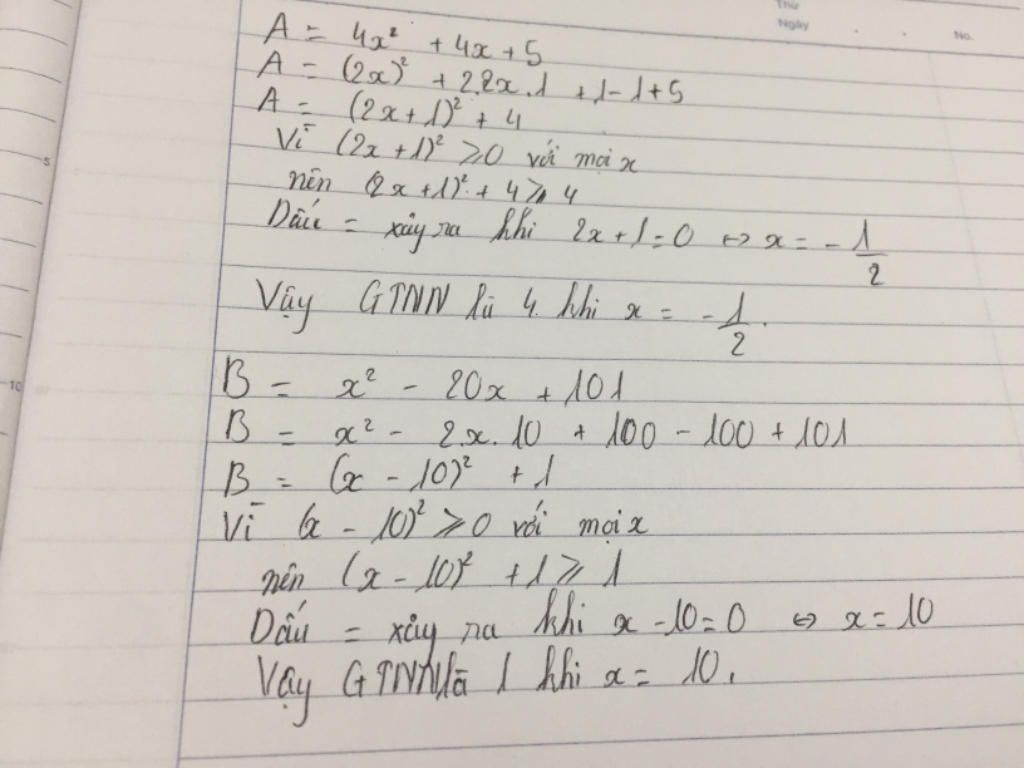 Thứ
Ngày
No.
A = 4x² + 4x + 5
A = (2x)² + 2.2x.1 + 1 - 1 + 5
A = (2x + 1)² + 4
Vì (2x + 1)² ≥ 0 với mọi x
5
nên (2x + 1)² + 4 ≥ 4
Dấu = xảy ra khi 2x + 1 = 0 ⇔ x = -1/2
Vậy GTNN là 4 khi x = -1/2.
B = x² - 20x + 101
10
B = x² - 2.x.10 + 100 - 100 + 101
B = (x - 10)² + 1
Vì (x - 10)² ≥ 0 với mọi x
nên (x - 10)² + 1 ≥ 1
Dấu = xảy ra khi x - 10 = 0 ⇔ x = 10
Vậy GTNN là 1 khi x = 10.